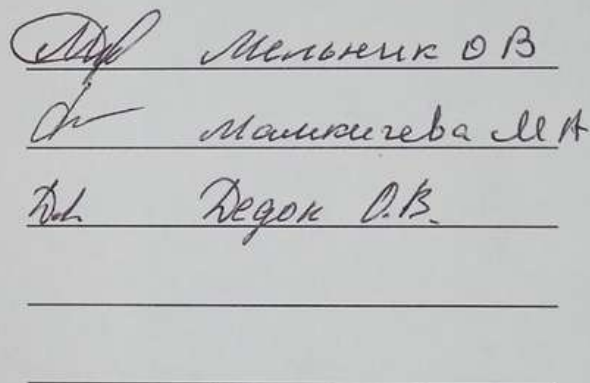 Мельник О В
Мамкичева М А
Дедок О.В.